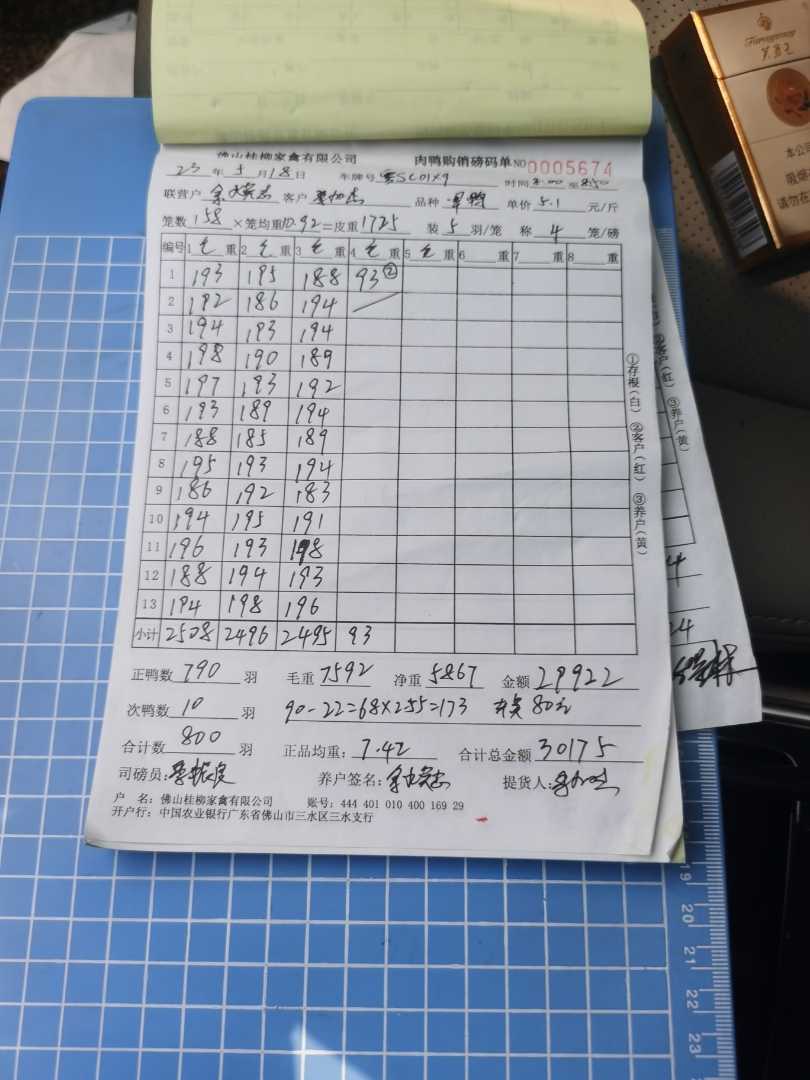 佛山桂柳家禽有限公司 肉鸭购销磅码单 NO 0005674
23 年 5 月 18 日 车牌号 时间 至 8:50
联营户 客户 品种 单价 5.1 元/斤
笼数 158 ×笼均重 10.92 =皮重 1725 装 5 羽/笼 称 4 笼/磅
编号 1 毛 重 2 毛 重 3 毛 重 4 毛 重 5 毛 重 6 重 7 重 8 重
1 193 195 188 93②
2 192 186 194
3 194 193 194
4 198 190 189
5 197 193 192
6 193 189 194
7 188 185 189
8 195 193 194
9 186 192 183
10 194 195 191
11 196 193 198
12 188 194 193
13 194 198 196
小计 2508 2496 2495 93
正鸭数 790 羽 毛重 7592 净重 5867 金额 29922
次鸭数 10 羽 90-22=68×2.55=173 80元
合计数 800 羽 正品均重: 7.42 合计总金额 30175
司磅员: 养户签名: 提货人:
户 名: 佛山桂柳家禽有限公司 账号: 444 401 010 400 169 29
开户行: 中国农业银行广东省佛山市三水区三水支行
①存根(白) ②客户(红) ③养户(黄)
②客户(红) ③养户(黄)
24
19
20
21
22
23